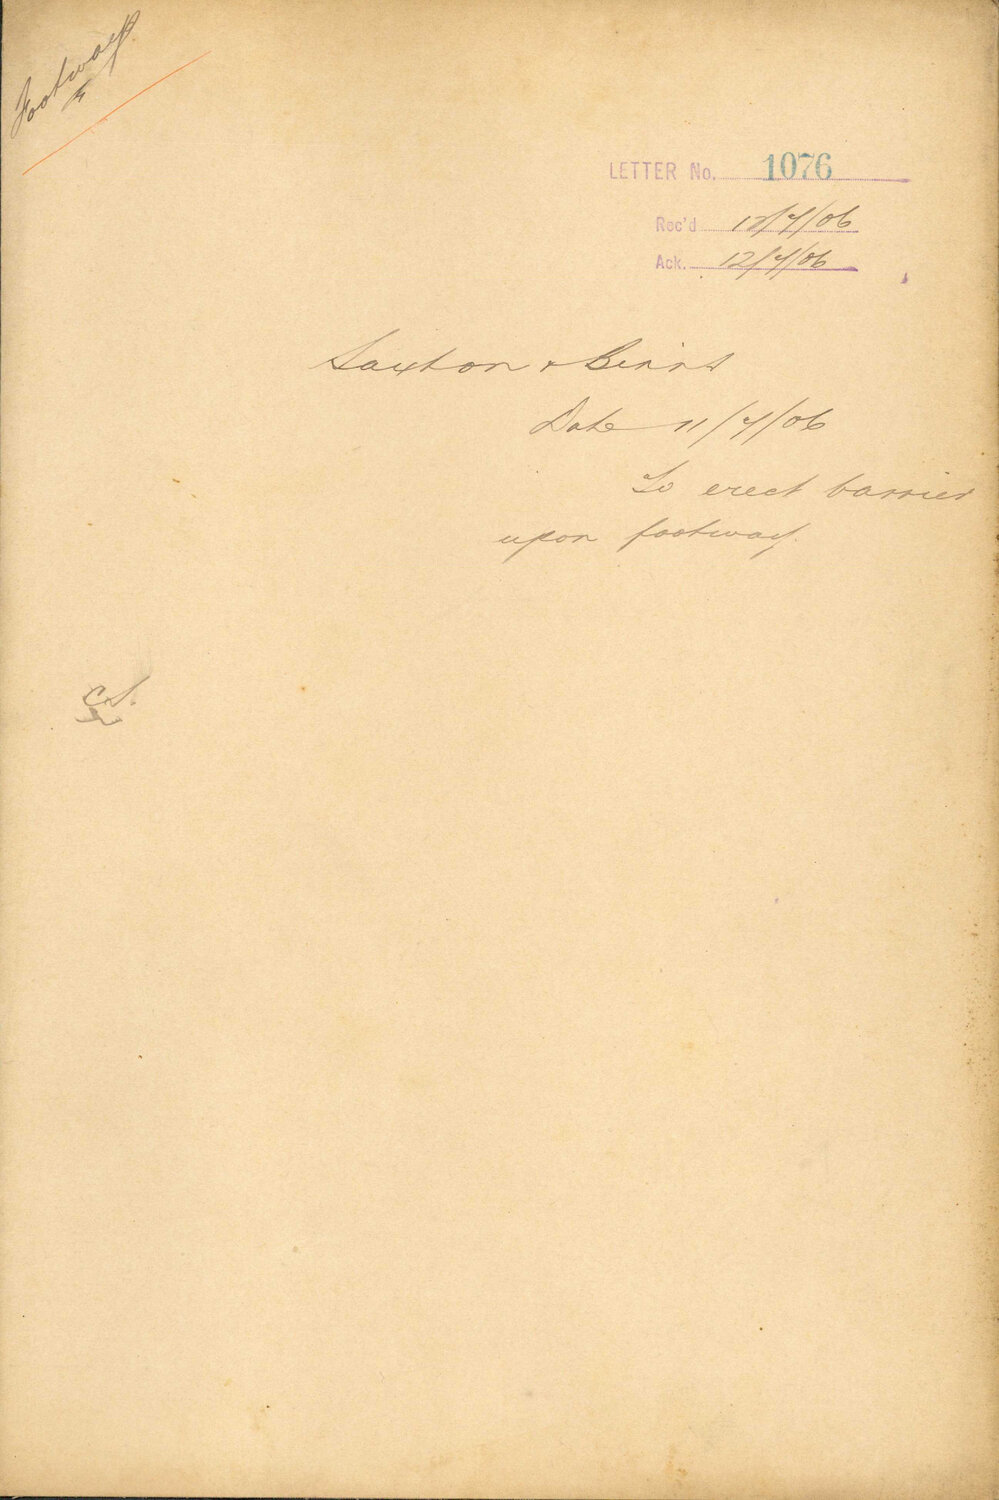 Footways
LETTER No. 1076
Rec'd 12/4/06
Ack. 12/4/06
Saxton & Binns
Date 11/4/06
To erect barrier
upon footway.
C.S.